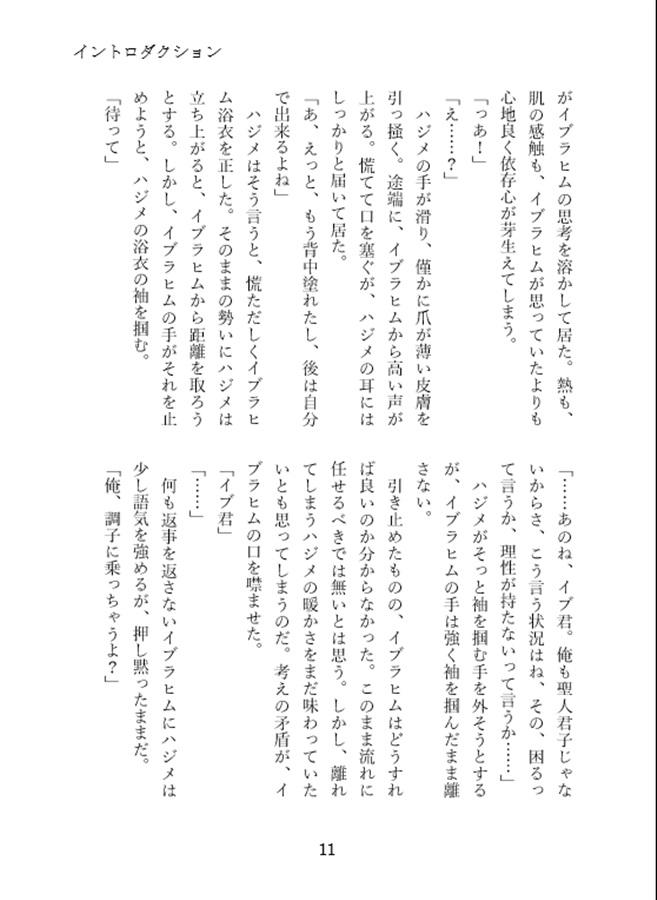 イントロダクション
がイブラヒムの思考を溶かして居た。熱も、
肌の感触も、イブラヒムが思っていたよりも
心地良く依存心が芽生えてしまう。
「っあ！」
「え……？」
　ハジメの手が滑り、僅かに爪が薄い皮膚を
引っ掻く。途端に、イブラヒムから高い声が
上がる。慌てて口を塞ぐが、ハジメの耳には
しっかりと届いて居た。
「あ、えっと、もう背中塗れたし、後は自分
で出来るよね」
　ハジメはそう言うと、慌ただしくイブラヒ
ム浴衣を正した。そのままの勢いにハジメは
立ち上がると、イブラヒムから距離を取ろう
とする。しかし、イブラヒムの手がそれを止
めようと、ハジメの浴衣の袖を掴む。
「待って」
「……あのね、イブ君。俺も聖人君子じゃな
いからさ、こう言う状況はね、その、困るっ
て言うか、理性が持たないって言うか……」
　ハジメがそっと袖を掴む手を外そうとする
が、イブラヒムの手は強く袖を掴んだまま離
さない。
　引き止めたものの、イブラヒムはどうすれ
ば良いのか分からなかった。このまま流れに
任せるべきでは無いとは思う。しかし、離れ
てしまうハジメの暖かさをまだ味わっていた
いとも思ってしまうのだ。考えの矛盾が、イ
ブラヒムの口を噤ませた。
「イブ君」
「……」
　何も返事を返さないイブラヒムにハジメは
少し語気を強めるが、押し黙ったままだ。
「俺、調子に乗っちゃうよ？」
11